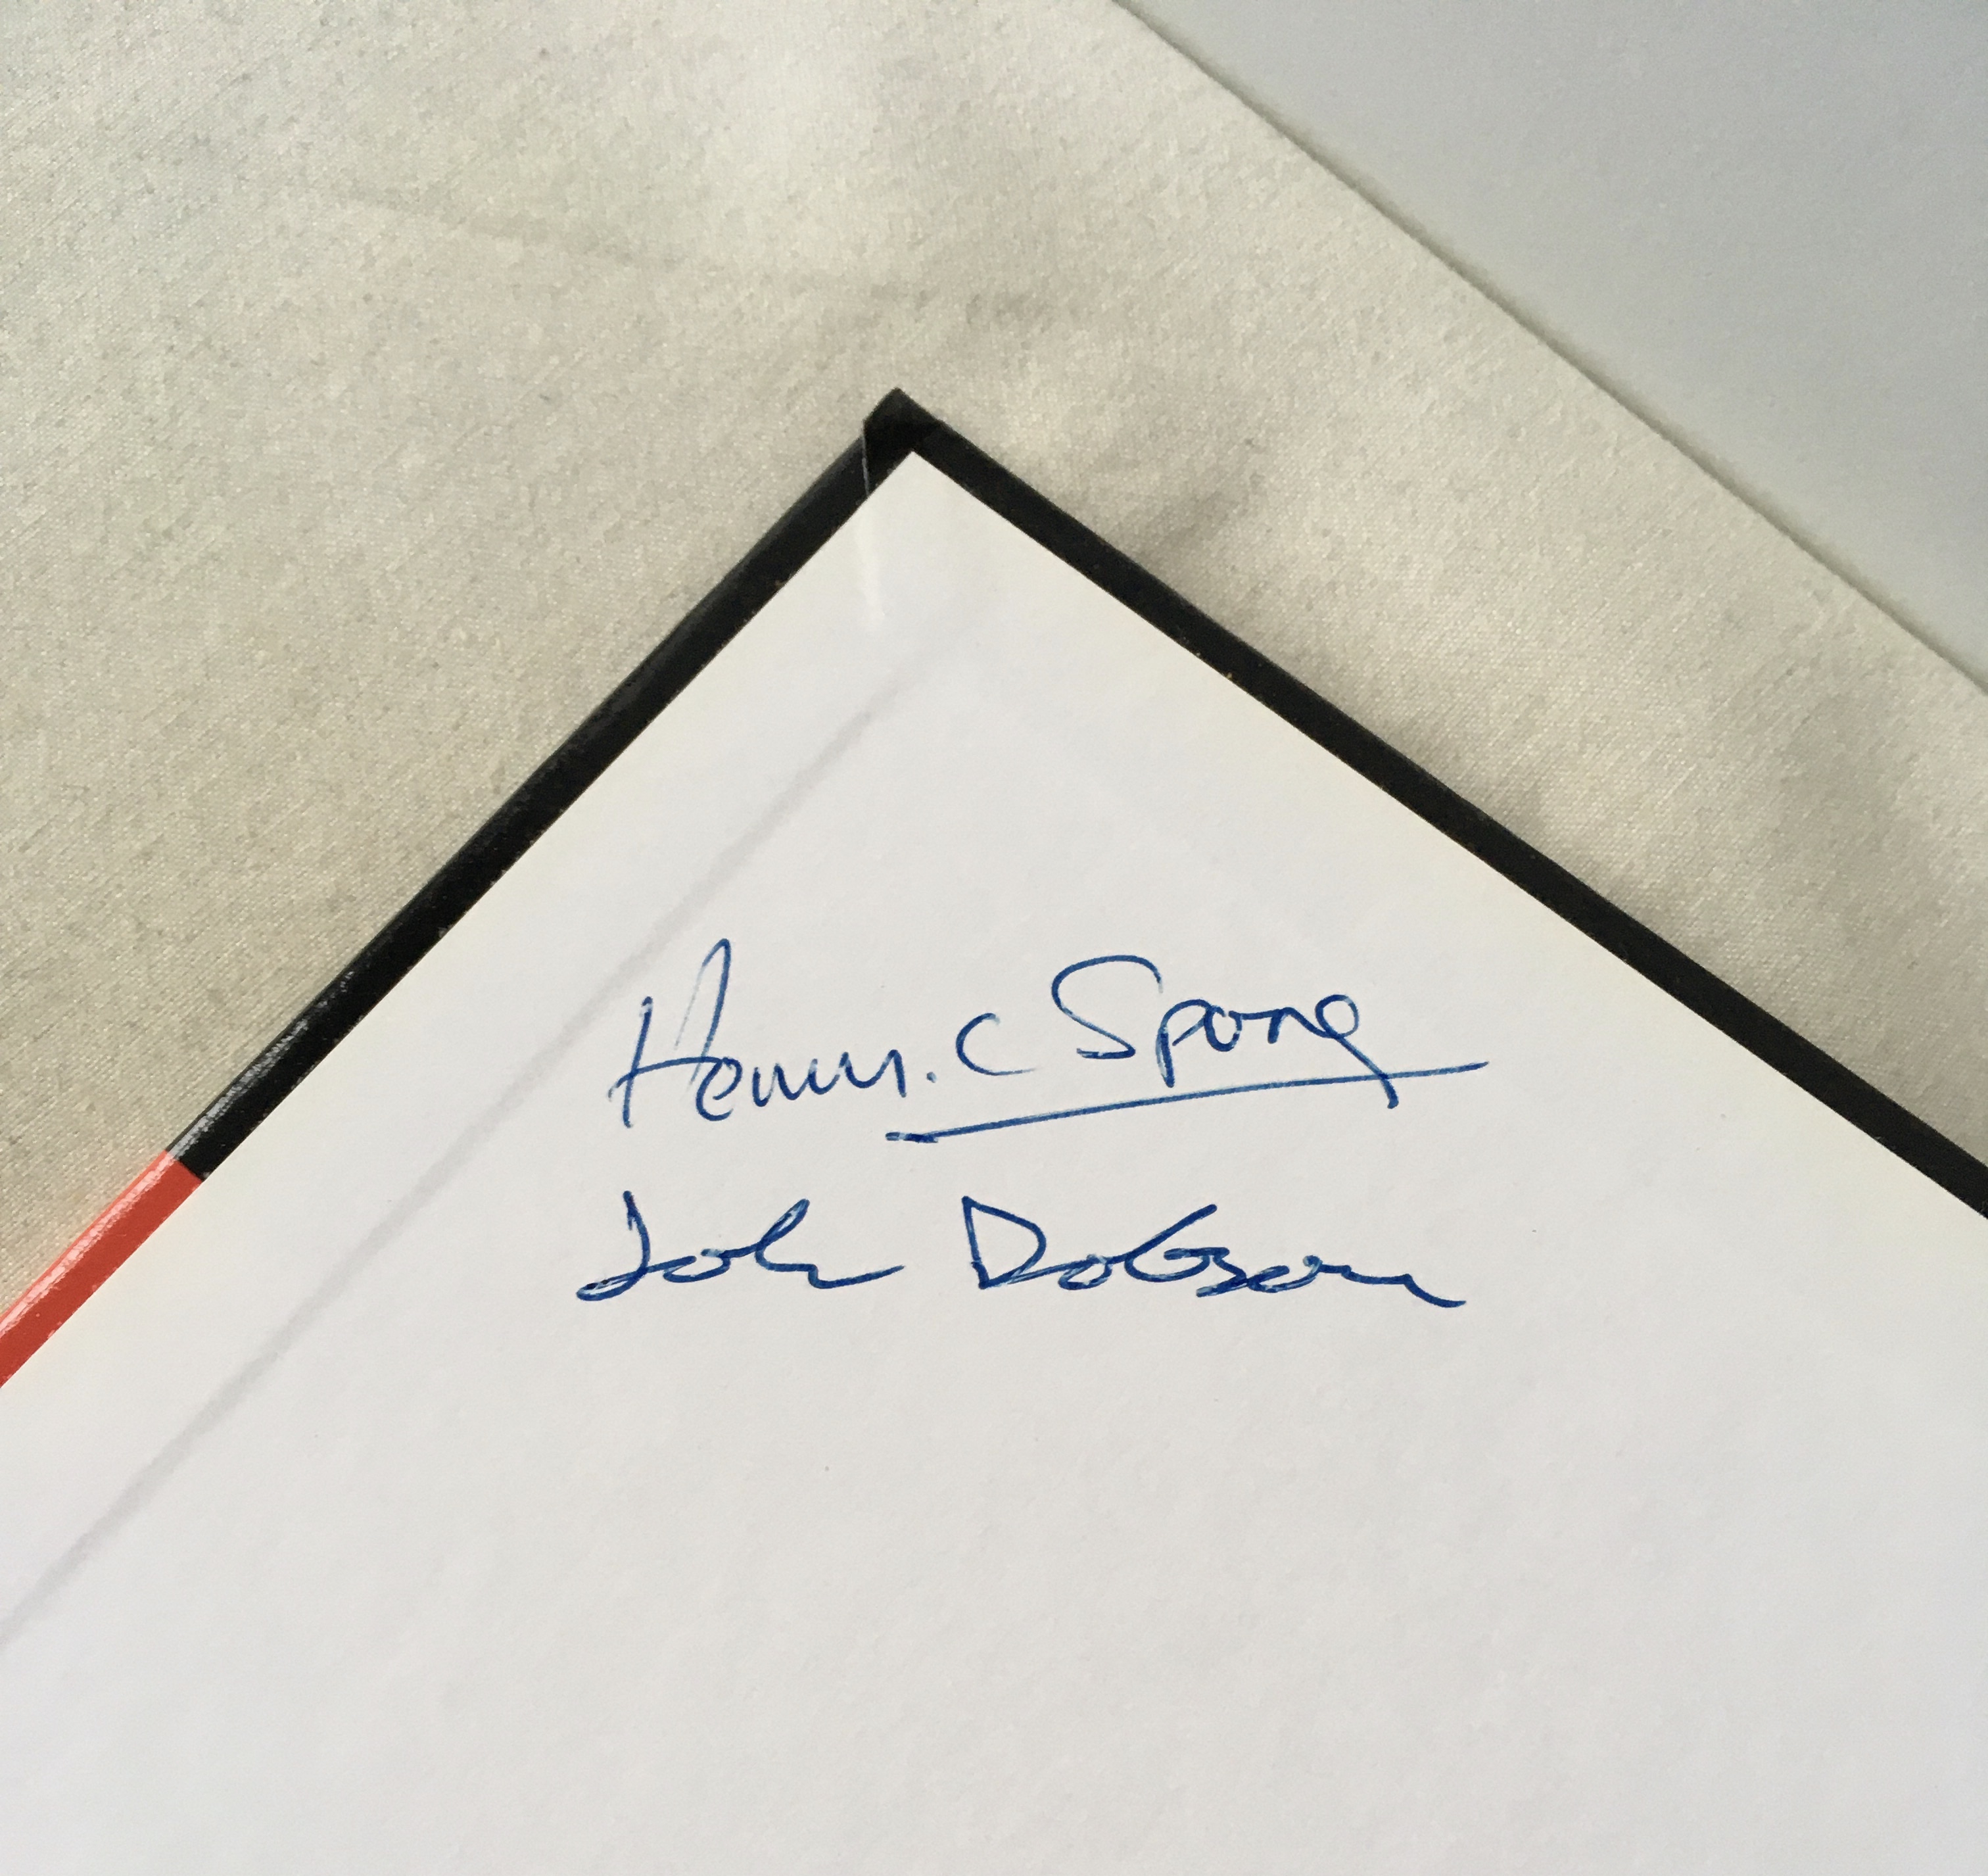 Henry. C Spong
John Dobson